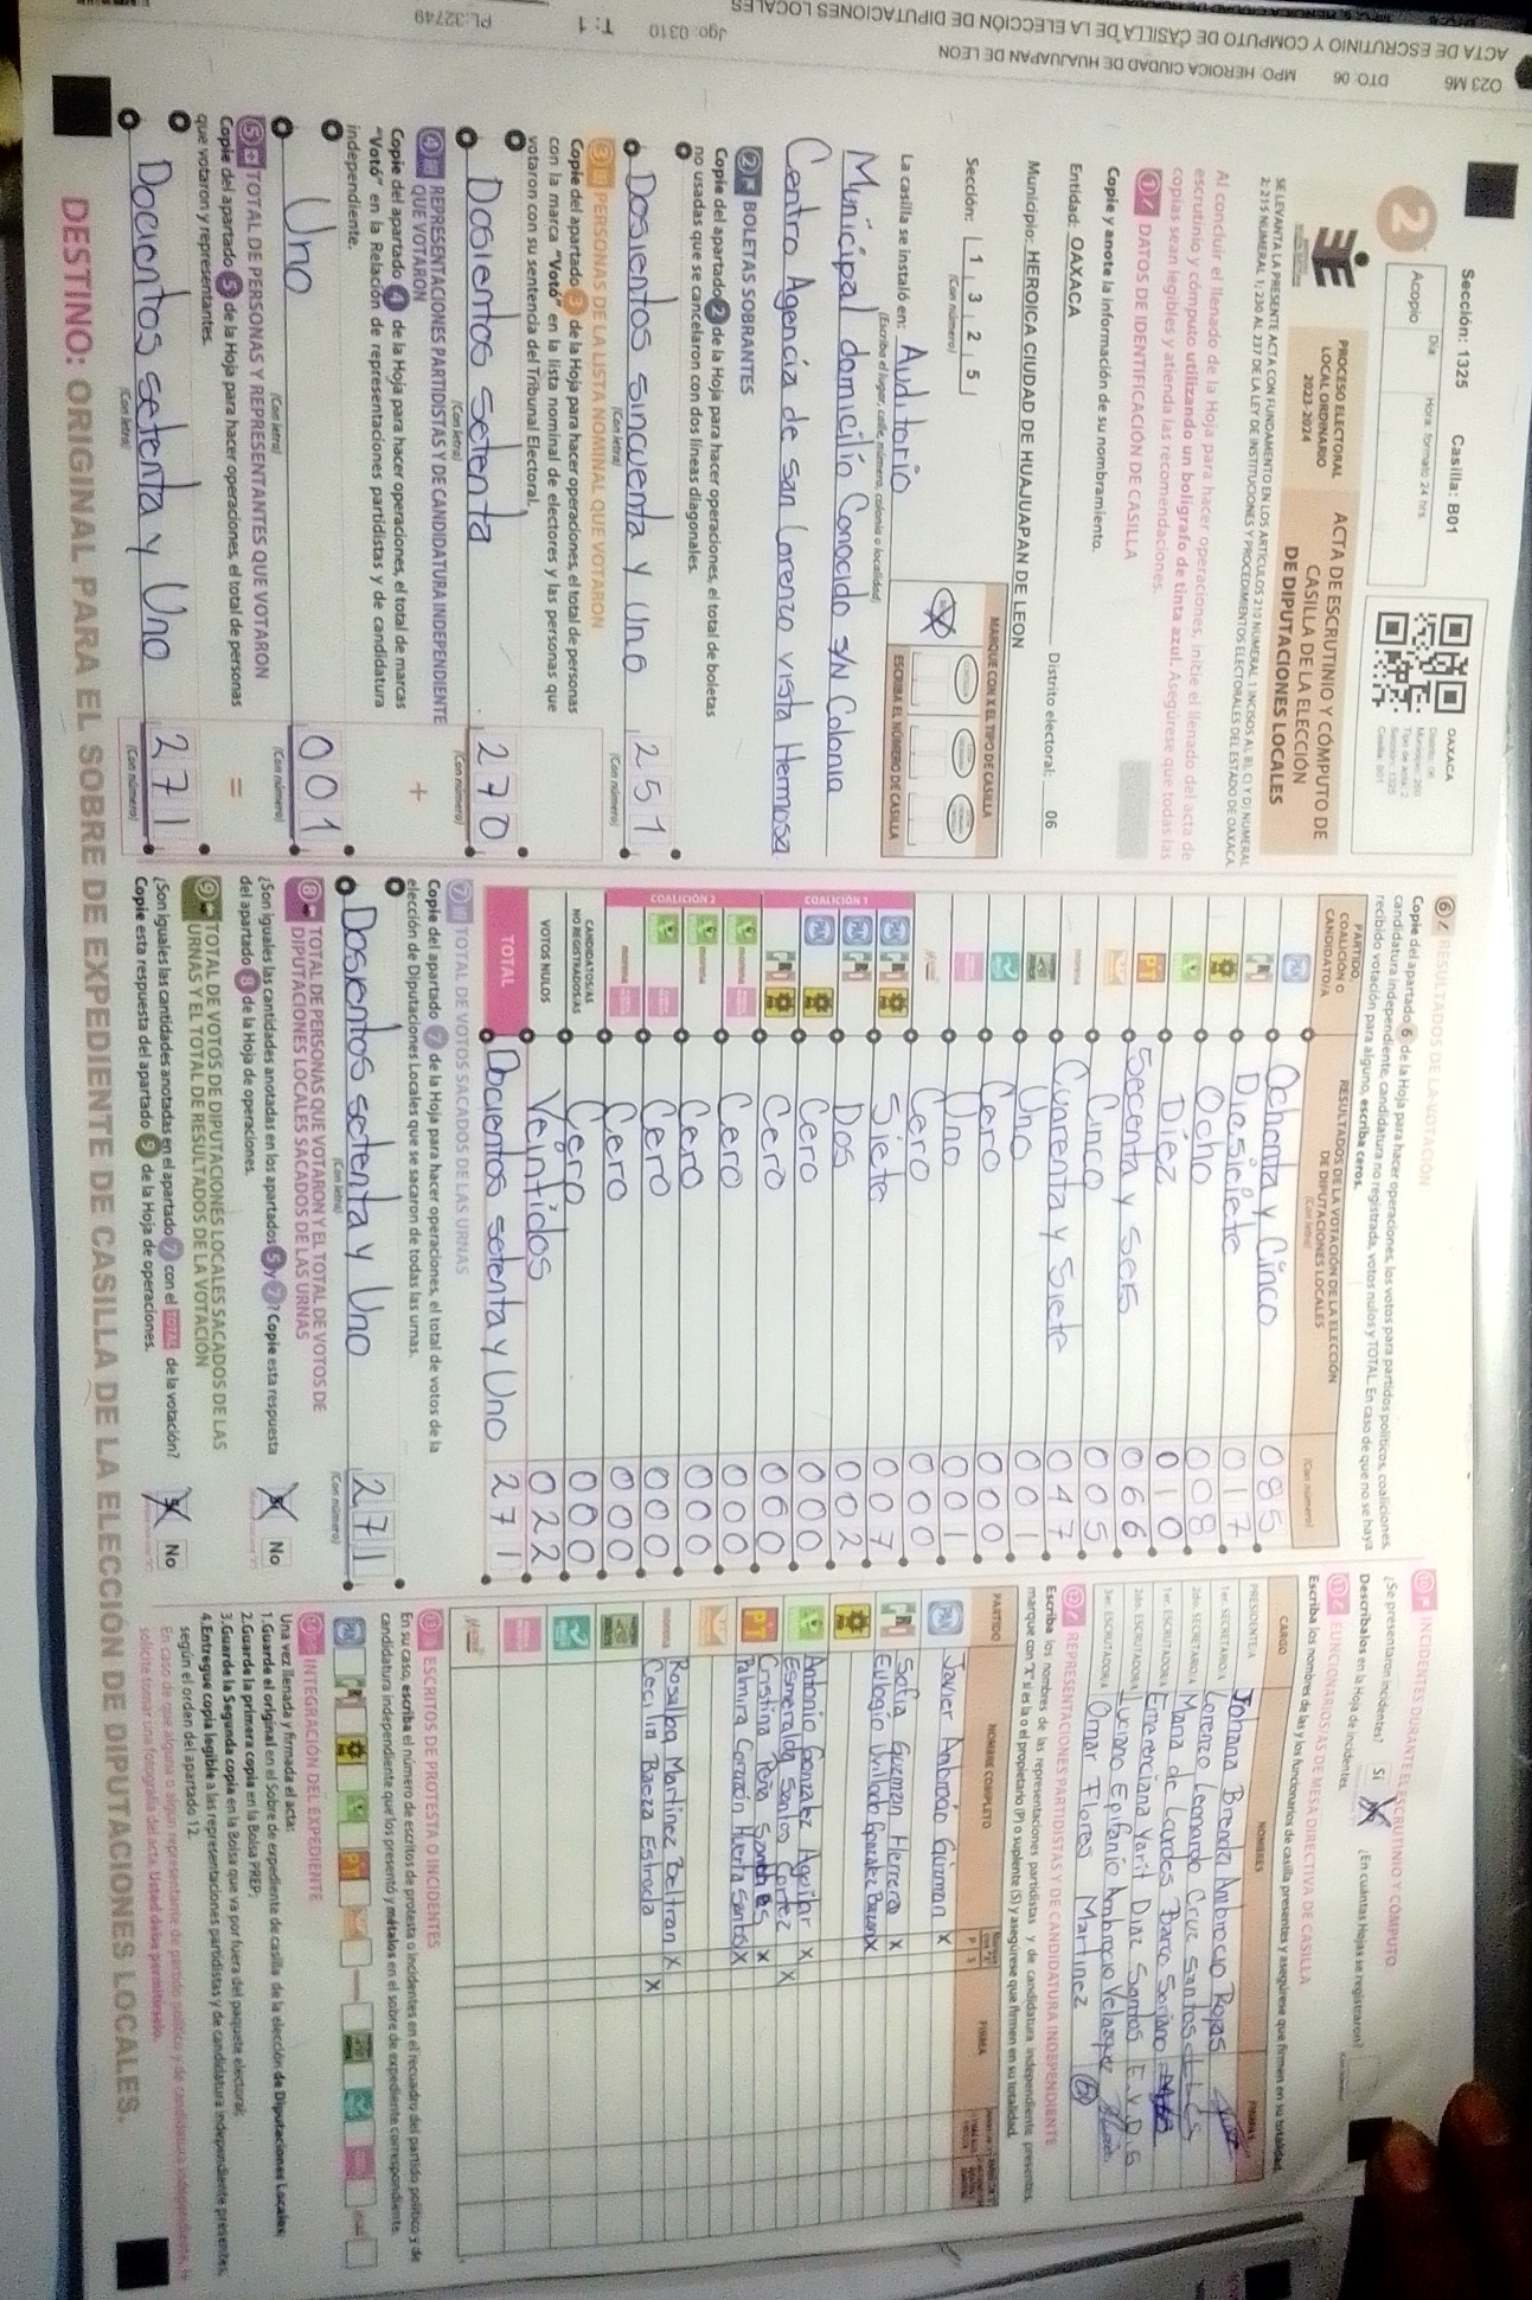 Sección: 1325 Casilla: B01
Día Hora: formato 24 hrs
Acopio
OAXACA
Distrito: 06
Tipo de acta: 2
Sección: 1325
Casilla: B01
2
PROCESO ELECTORAL
LOCAL ORDINARIO
2023-2024
ACTA DE ESCRUTINIO Y CÓMPUTO DE
CASILLA DE LA ELECCIÓN
DE DIPUTACIONES LOCALES
SE LEVANTA LA PRESENTE ACTA CON FUNDAMENTO EN LOS ARTÍCULOS 213 NUMERAL 1 INCISOS A), B), C) Y D) NUMERAL
2; 215 NUMERAL 1; 230 AL 237 DE LA LEY DE INSTITUCIONES Y PROCEDIMIENTOS ELECTORALES DEL ESTADO DE OAXACA.
Al concluir el llenado de la Hoja para hacer operaciones, inicie el llenado del acta de
escrutinio y cómputo utilizando un bolígrafo de tinta azul. Asegúrese que todas las
copias sean legibles y atienda las recomendaciones.
1 DATOS DE IDENTIFICACIÓN DE CASILLA
Copie y anote la información de su nombramiento.
Entidad: OAXACA Distrito electoral: 06
Municipio: HEROICA CIUDAD DE HUAJUAPAN DE LEON
Sección: 1 3 2 5
(Con número)
MARQUE CON X EL TIPO DE CASILLA
ESCRIBA EL NÚMERO DE CASILLA
La casilla se instaló en: Auditorio
(Escriba el lugar, calle, número, colonia o localidad)
Municipal domicilio Conocido S/N Colonia
Centro Agencia de San Lorenzo vista Hermosa
2 BOLETAS SOBRANTES
Copie del apartado 2 de la Hoja para hacer operaciones, el total de boletas
no usadas que se cancelaron con dos líneas diagonales.
Dosientos sincuenta y uno 251
(Con letra) (Con número)
3 PERSONAS DE LA LISTA NOMINAL QUE VOTARON
Copie del apartado 3 de la Hoja para hacer operaciones, el total de personas
con la marca "Votó" en la lista nominal de electores y las personas que
votaron con su sentencia del Tribunal Electoral.
Dosientos setenta 270
(Con letra) (Con número)
4 REPRESENTACIONES PARTIDISTAS Y DE CANDIDATURA INDEPENDIENTE
QUE VOTARON
Copie del apartado 4 de la Hoja para hacer operaciones, el total de marcas
"Votó" en la Relación de representaciones partidistas y de candidatura
independiente.
+
Uno 001
(Con letra) (Con número)
5 TOTAL DE PERSONAS Y REPRESENTANTES QUE VOTARON
Copie del apartado 5 de la Hoja para hacer operaciones, el total de personas
que votaron y representantes.
=
Docientos setenta y Uno 271
(Con letra) (Con número)
6 RESULTADOS DE LA VOTACIÓN
Copie del apartado 6 de la Hoja para hacer operaciones, los votos para partidos políticos, coaliciones,
candidatura independiente, candidatura no registrada, votos nulos y TOTAL. En caso de que no se haya
recibido votación para alguno, escriba ceros.
PARTIDO, COALICIÓN O CANDIDATO/A
RESULTADOS DE LA VOTACIÓN DE LA ELECCIÓN
DE DIPUTACIONES LOCALES
(Con letra) (Con número)
PAN Ochenta y Cinco 085
PRI Diesiciete 017
PRD Ocho 008
Diez 010
PT Secenta y seis 066
Cinco 005
morena Cuarenta y Siete 047
Uno 001
Cero 000
Uno 001
Cero 000
COALICIÓN 1
PAN PRI PRD Siete 007
PAN PRI Dos 002
PAN PRD Cero 000
PRI PRD Cero 000
COALICIÓN 2
morena Cero 000
morena Cero 000
Cero 000
morena Cero 000
CANDIDATOS/AS
NO REGISTRADOS/AS Cero 000
VOTOS NULOS Veintidos 022
TOTAL Docientos setenta y Uno 271
7 TOTAL DE VOTOS SACADOS DE LAS URNAS
Copie del apartado 7 de la Hoja para hacer operaciones, el total de votos de la
elección de Diputaciones Locales que se sacaron de todas las urnas.
Dosientos setenta y Uno 271
(Con letra) (Con número)
8 TOTAL DE PERSONAS QUE VOTARON Y EL TOTAL DE VOTOS DE
DIPUTACIONES LOCALES SACADOS DE LAS URNAS
¿Son iguales las cantidades anotadas en los apartados 5 y 7? Copie esta respuesta
del apartado 8 de la Hoja de operaciones.
No
9 TOTAL DE VOTOS DE DIPUTACIONES LOCALES SACADOS DE LAS
URNAS Y EL TOTAL DE RESULTADOS DE LA VOTACIÓN
¿Son iguales las cantidades anotadas en el apartado 7 con el TOTAL de la votación?
Copie esta respuesta del apartado 9 de la Hoja de operaciones.
No
10 INCIDENTES DURANTE EL ESCRUTINIO Y CÓMPUTO
¿Se presentaron incidentes? Sí ¿En cuántas Hojas se registraron?
Descríbalos en la Hoja de incidentes.
11 FUNCIONARIOS/AS DE MESA DIRECTIVA DE CASILLA
Escriba los nombres de las y los funcionarios de casilla presentes y asegúrese que firmen en su totalidad.
CARGO NOMBRES FIRMAS
PRESIDENTE/A Johana Brenda Ambrocio Rojas
1er. SECRETARIO/A Lorenzo Leonardo Cruz Santos
2do. SECRETARIO/A Maria de Lourdes Barco Soriano
1er. ESCRUTADOR/A Emerenciana Yarit Diaz Santos E.Y.D.S
2do. ESCRUTADOR/A Luciano Epifanio Ambrocio Velazquez
3er. ESCRUTADOR/A Omar Flores Martinez
12 REPRESENTACIONES PARTIDISTAS Y DE CANDIDATURA INDEPENDIENTE
Escriba los nombres de las representaciones partidistas y de candidatura independiente presentes,
marque con "X" si es la o el propietario (P) o suplente (S) y asegúrese que firmen en su totalidad.
PARTIDO NOMBRE COMPLETO P S FIRMA
PAN Javier Ambrocio Guzman X
PRI Sofia Guzman Herrera X
Eulogio Unilado Gonzalez Bazan X
PRD
Antonio Gonzalez Aguilar X
Esmeralda Santos Cortez X
PT Cristina Peña Sanches X
Palmira Corazón Huerta Santos X
morena Rosalba Martinez Beltran X
Cecilia Baeza Estrada X
13 ESCRITOS DE PROTESTA O INCIDENTES
En su caso, escriba el número de escritos de protesta o incidentes en el recuadro del partido político y de
candidatura independiente que los presentó y métalos en el sobre de expediente correspondiente.
14 INTEGRACIÓN DEL EXPEDIENTE
Una vez llenada y firmada el acta:
1.Guarde el original en el Sobre de expediente de casilla de la elección de Diputaciones Locales;
2.Guarde la primera copia en la Bolsa PREP;
3.Guarde la Segunda copia en la Bolsa que va por fuera del paquete electoral;
4.Entregue copia legible a las representaciones partidistas y de candidatura independiente presentes,
según el orden del apartado 12.
En caso de que alguna o algún representante de partido político y de candidatura independiente, le
solicite tomar una fotografía del acta, Usted debe permitírselo.
DESTINO: ORIGINAL PARA EL SOBRE DE EXPEDIENTE DE CASILLA DE LA ELECCIÓN DE DIPUTACIONES LOCALES.
O23 M6 DTO: 06 MPO: HEROICA CIUDAD DE HUAJUAPAN DE LEON
ACTA DE ESCRUTINIO Y COMPUTO DE CASILLA DE LA ELECCIÓN DE DIPUTACIONES LOCALES
Jgo: 0310 T: 1 PL:32749